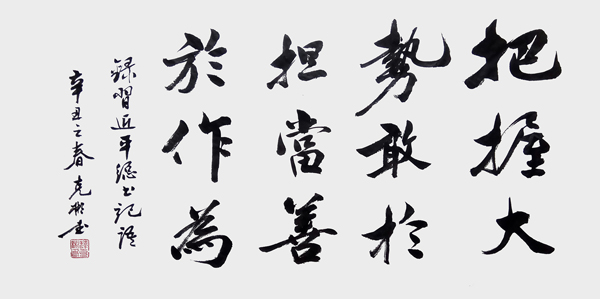 把握大
勢敢於
担當善
於作為
録習近平總书記語
辛丑之春克彬书